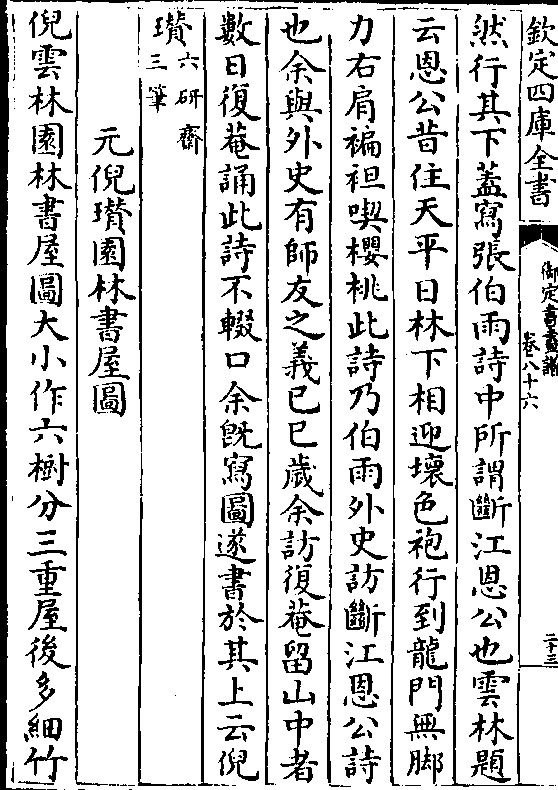 欽定四庫全書
御定書畫譜
卷八十六
二十三
然行其下蓋寫張伯雨詩中所謂斷江恩公也雲林題
云恩公昔住天平日林下相迎壞色袍行到龍門無脚
力右肩褊袒喫櫻桃此詩乃伯雨外史訪斷江恩公詩
也余與外史有師友之義已巳歲余訪復菴留山中者
數日復菴誦此詩不輟口余旣寫圖遂書於其上云倪
瓚六研齋
三筆
元倪瓚園林書屋圖
倪雲林園林書屋圖大小作六樹分三重屋後多細竹